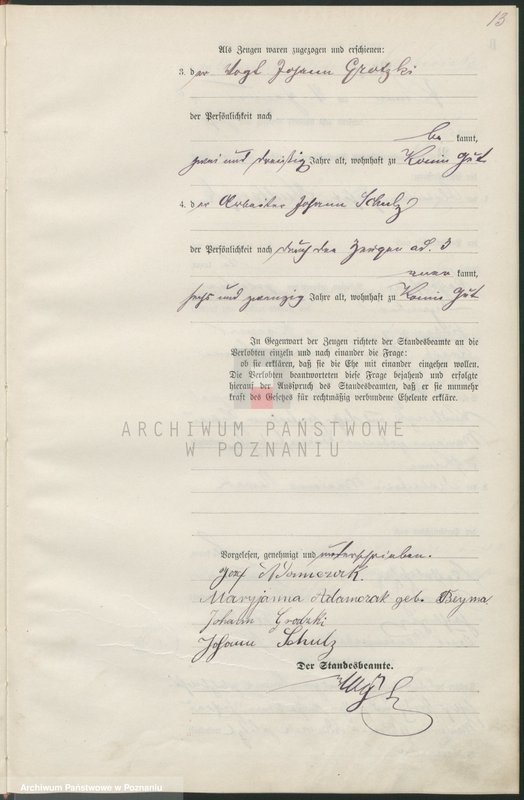 13
Als Zeugen waren zugezogen und erschienen:
3. der Vogt Johann Grotzki
der Persönlichkeit nach
be kannt,
zwei und dreißig Jahre alt, wohnhaft zu Konin Gut
4. der Arbeiter Johann Schulz
der Persönlichkeit nach durch den Zeugen ad. 3
aner kannt,
sechs und zwanzig Jahre alt, wohnhaft zu Konin Gut
In Gegenwart der Zeugen richtete der Standesbeamte an die
Verlobten einzeln und nach einander die Frage:
ob sie erklären, daß sie die Ehe mit einander eingehen wollen.
Die Verlobten beantworteten diese Frage bejahend und erfolgte
hierauf der Ausspruch des Standesbeamten, daß er sie nunmehr
kraft des Gesetzes für rechtmäßig verbundene Eheleute erkläre.
ARCHIWUM PAŃSTWOWE
W POZNANIU
Vorgelesen, genehmigt und unterschrieben.
Jozef Adamczak.
Maryjanna Adamczak geb. Beyma
Johann Grodzki
Johann Schulz
Der Standesbeamte.
Archiwum Państwowe w Poznaniu